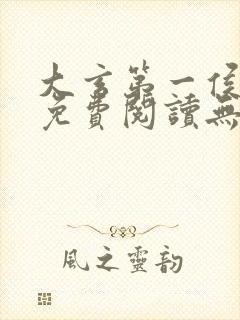 大言第一侯
免費閱讀無
風之靈韵